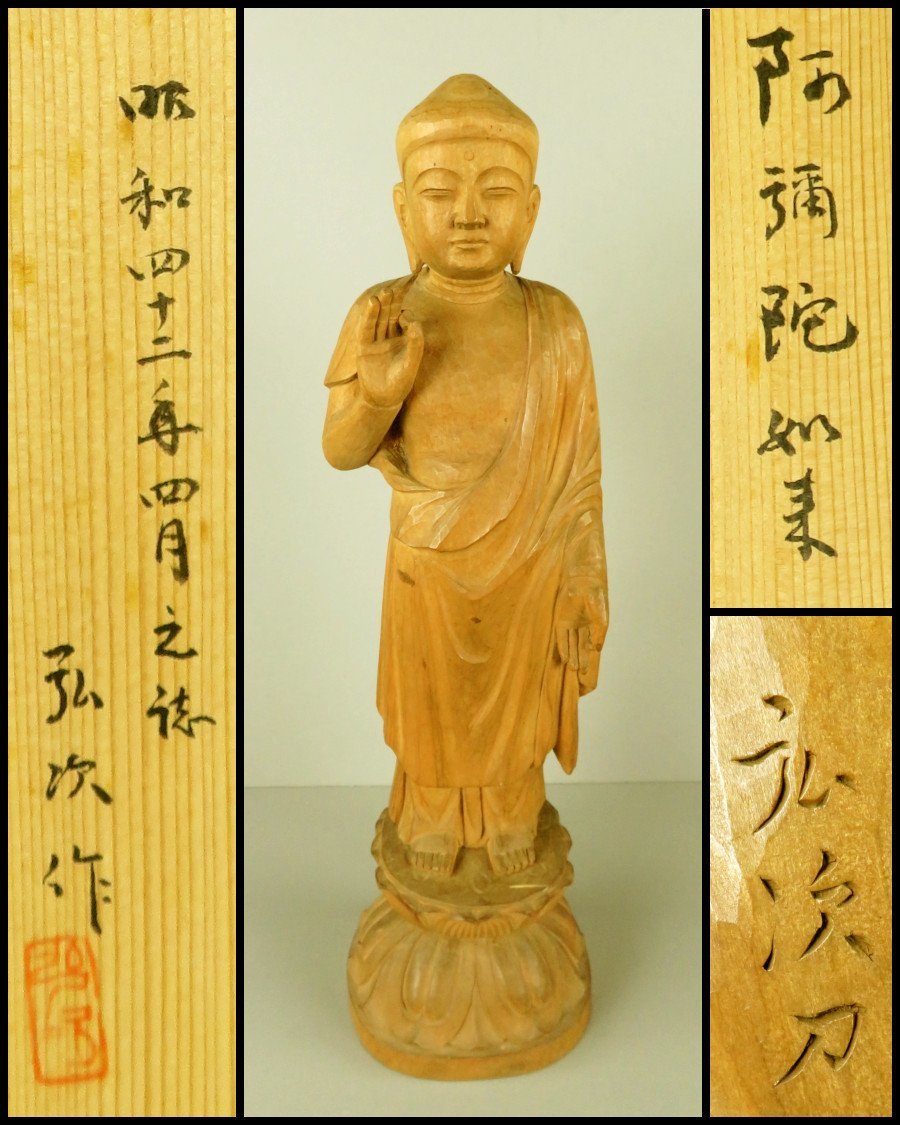 阿彌陀如来
昭和四十二年四月之誌
弘次作
弘次刀